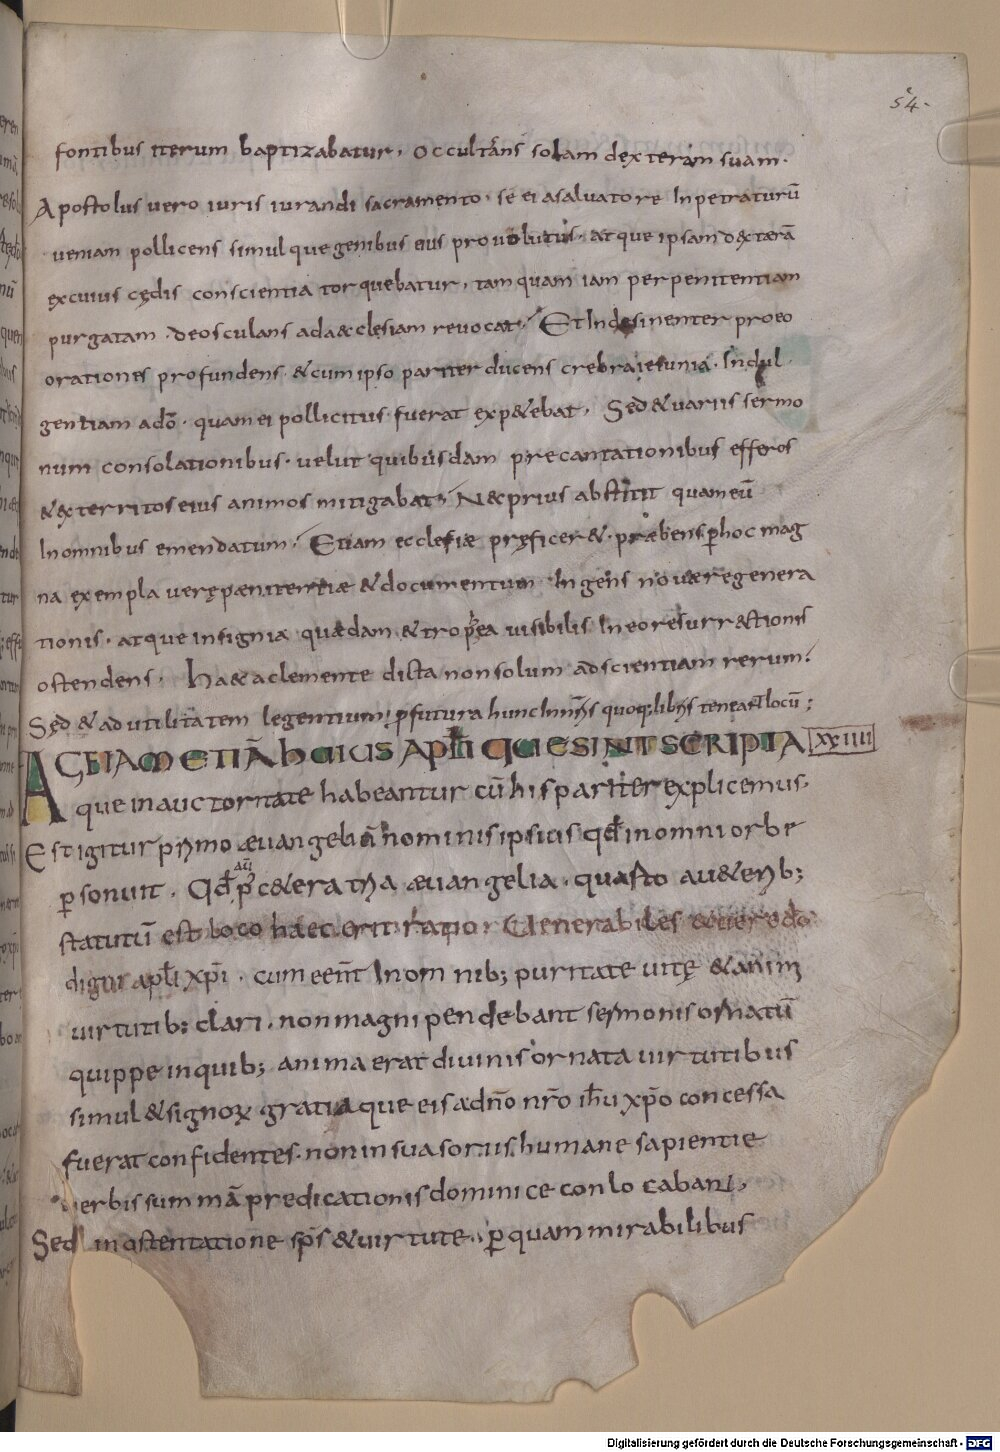 54.
fontibus iterum baptizabatur. Occultans solam dexteram suam.
Apostolus vero iuris iurandi sacramento. se ei a salvatore Inpetraturū
veniam pollicens simul que genibus eius provolutus. atque ipsam dexterā
ex cuius cędis conscientia torquebatur. tam quam iam per penitentiam
purgatam. deosculans ad a&clesiam revocat. Et Indesinenter pro eo
orationes profundens. & cum ipso pariter ducens crebra ieiunia. Indul
gentiam a dō. quam ei pollicitus fuerat exp&ebat. Sed & variis sermo
num consolationibus. velut quibusdam precantationibus efferos
& exterritos eius animos mitigabat; N&c prius abstitit quam eū
In omnibus emendatum. Etiam ecclesiæ pręficer&. præbens p hoc mag
na exempla verę pæniteretiæ & documentum Ingens novæ regenera
tionis. atque insignia quædam & tropea visibilis In eo resurrectionis
ostendens. Ha&c a clemente dicta non solum ad scientiam rerum.
Sed & ad utilitatem legentium pfutura hunc In nris quoq; libris teneant locū;
AGE IAM ETIĀ HUIUS APLI QUE SINT SCRIPTA XXIIII
que in auctoritate habeantur cū his pariter explicemus.
Est igitur primo ævangeliū nominis ipsius qd in omni orbe
personuit. Qd p̄ c&era tria ævangelia. quarto au&erib;
statutū est loco haec erit ratio; Venerabiles & vere dō
digni apli xpi. cum eent In omnib; puritate vitę & animi
virtutib; clari. non magni pendebant sermonis ornatū
quippe in quib; anima erat divinis ornata virtutibus
simul & signoꝝ gratia que eis a dño nro ihu xpo concessa
fuerat confidentes. non in suasoriis humane sapientie
verbis summā predicationis dominice conlocabant;
Sed in ostentatione sps & virtute. p quam mirabilibus
Digitalisierung gefördert durch die Deutsche Forschungsgemeinschaft - DFG